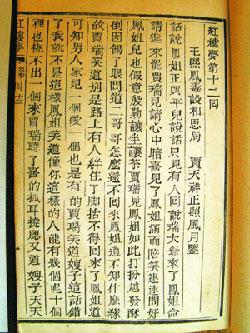 紅樓夢第十二回
王熙鳳毒設相思局 賈天祥正照風月鑒
話說鳳姐正與平兒說話只見有人回說瑞大爺來了鳳姐命
請進來罷賈瑞見請心中暗喜見了鳳姐滿面陪笑連連問好
鳳姐兒也假意殷勤讓坐讓茶賈瑞見鳳姐如此打扮越發酥
倒因餳了眼問道二哥哥怎麽還不回來鳳姐道不知什麽緣
故賈瑞笑道別是路上有人絆住了脚捨不得回來了鳳姐道
可知男人家見一個愛一個也是有的賈瑞笑道嫂子這話錯
了我就不是這樣人鳳姐笑道像你這樣的人能有幾個呢十個
裡也挑不出一個來賈瑞聽了喜的抓耳撓腮又道嫂子天天
紅樓夢